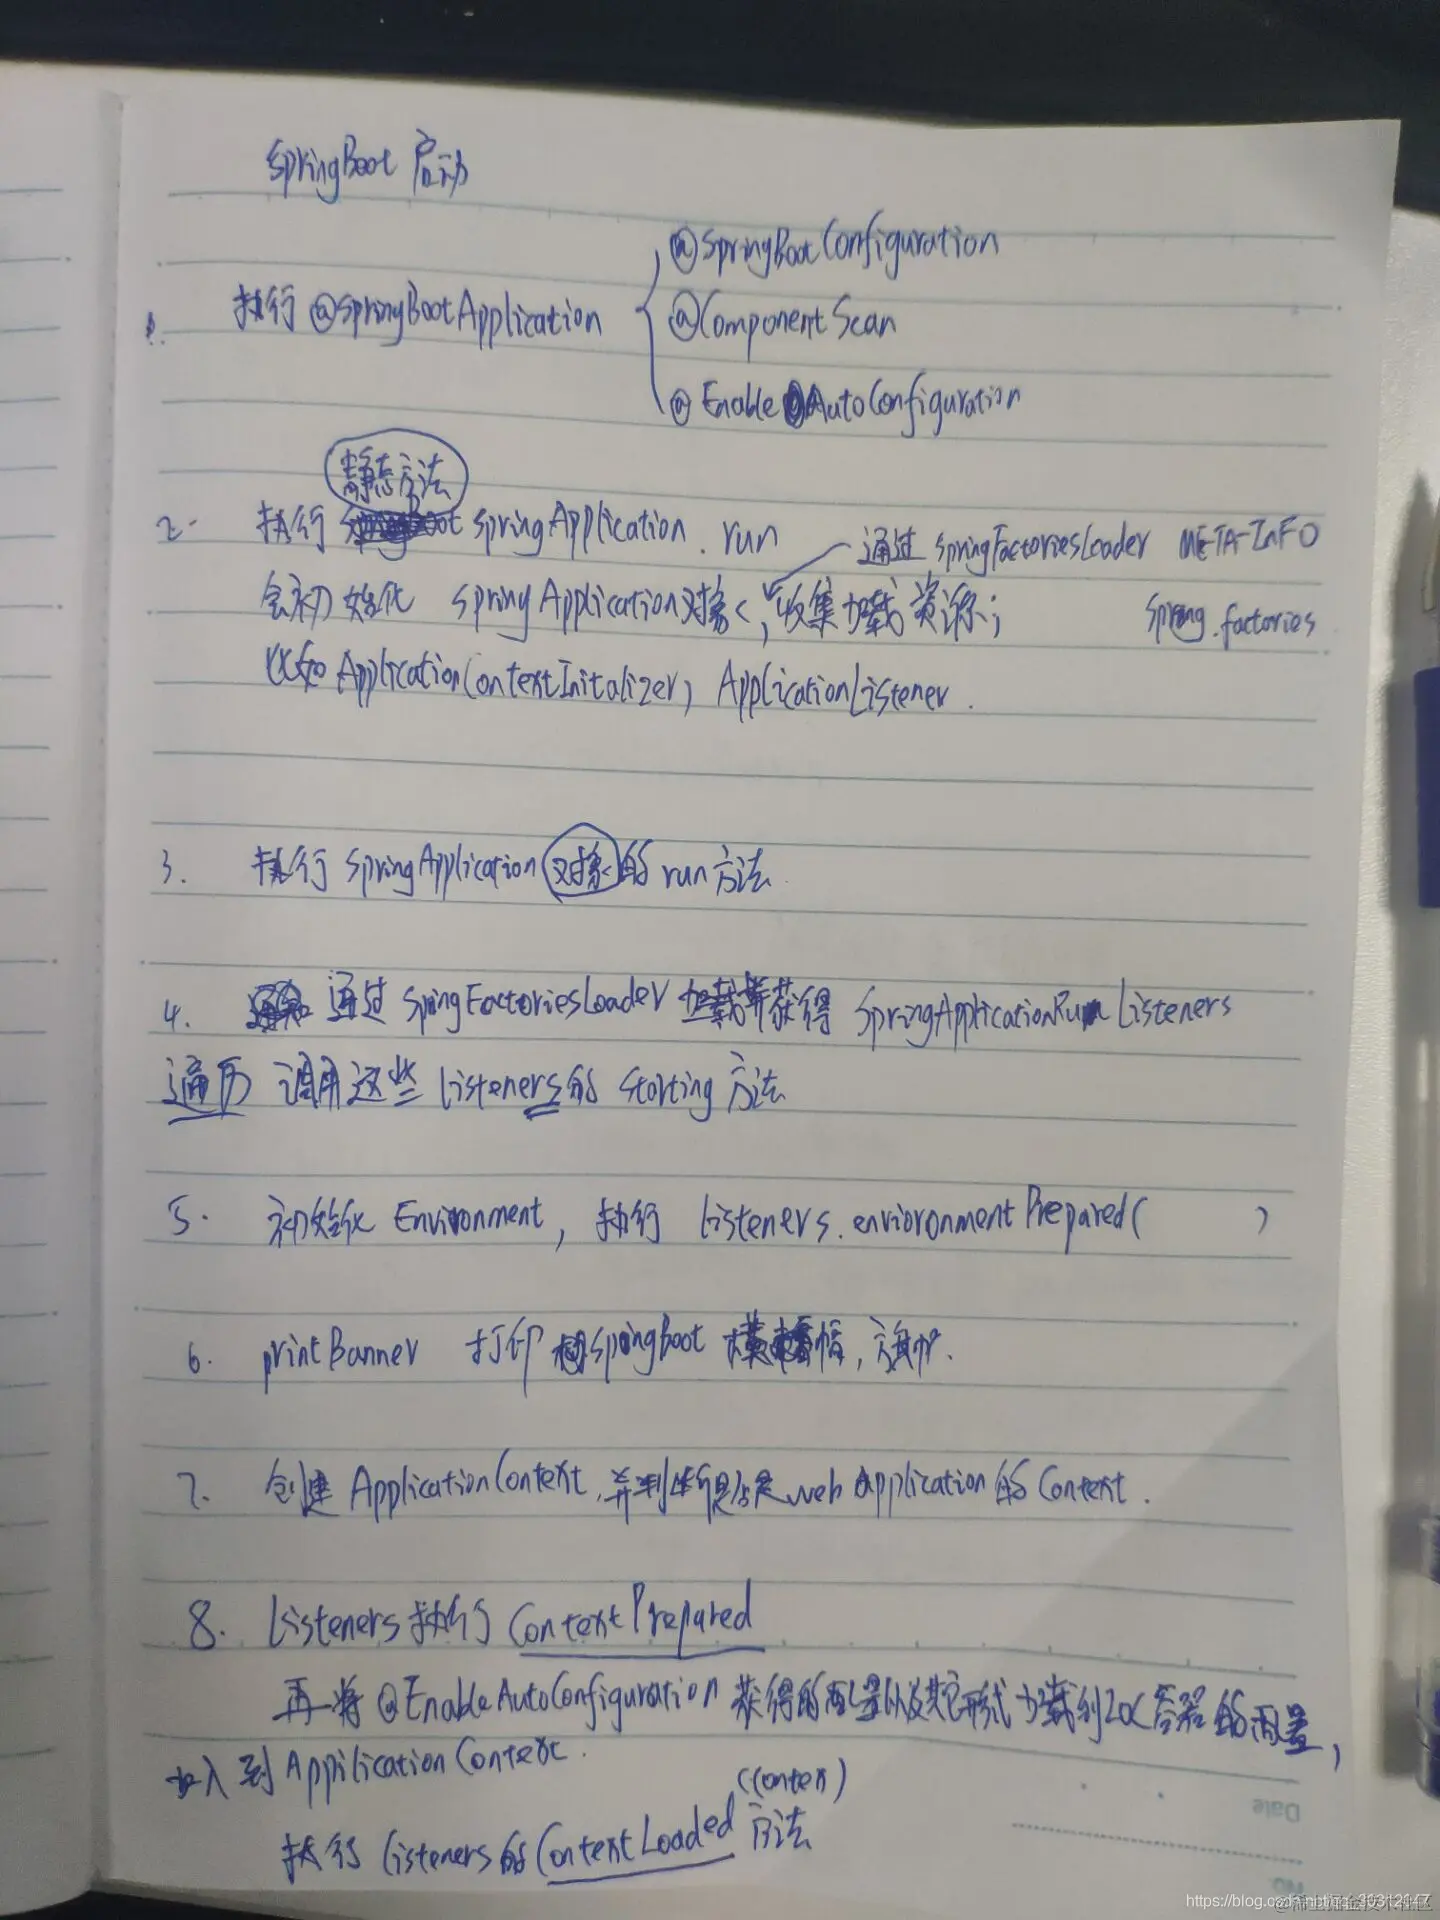 SpringBoot 启动
@SpringBootConfiguration
1. 执行 @SpringBootApplication
@ComponentScan
@EnableAutoConfiguration
静态方法
2. 执行 SpringApplication.run
通过 SpringFactoriesLoader META-INFO
会初始化 SpringApplication对象, 收集加载资源;
Spring.factories
比如 ApplicationContextInitalizer, ApplicationListener.
3. 执行 SpringApplication 对象的 run方法.
4. 通过 SpringFactoriesLoader 加载并获得 SpringApplicationRunListeners
遍历 调用这些 Listeners的 starting 方法
5. 初始化 Environment, 执行 Listeners.envioronmentPrepared( )
6. printBanner 打印 SpringBoot 横幅, 旗帜.
7. 创建 ApplicationContext, 并判断是否是 web application 的 Context.
8. Listeners 执行 ContextPrepared
再将 @EnableAutoConfiguration 获得的配置以及其它形式加载到IOC容器的配置,
加入到 AppilicationContext.
(Contex)
执行 Listeners的 ContextLoaded 方法
Date
No.
https://blog.csdn.net/qq_30312147
@稀土掘金技术社区